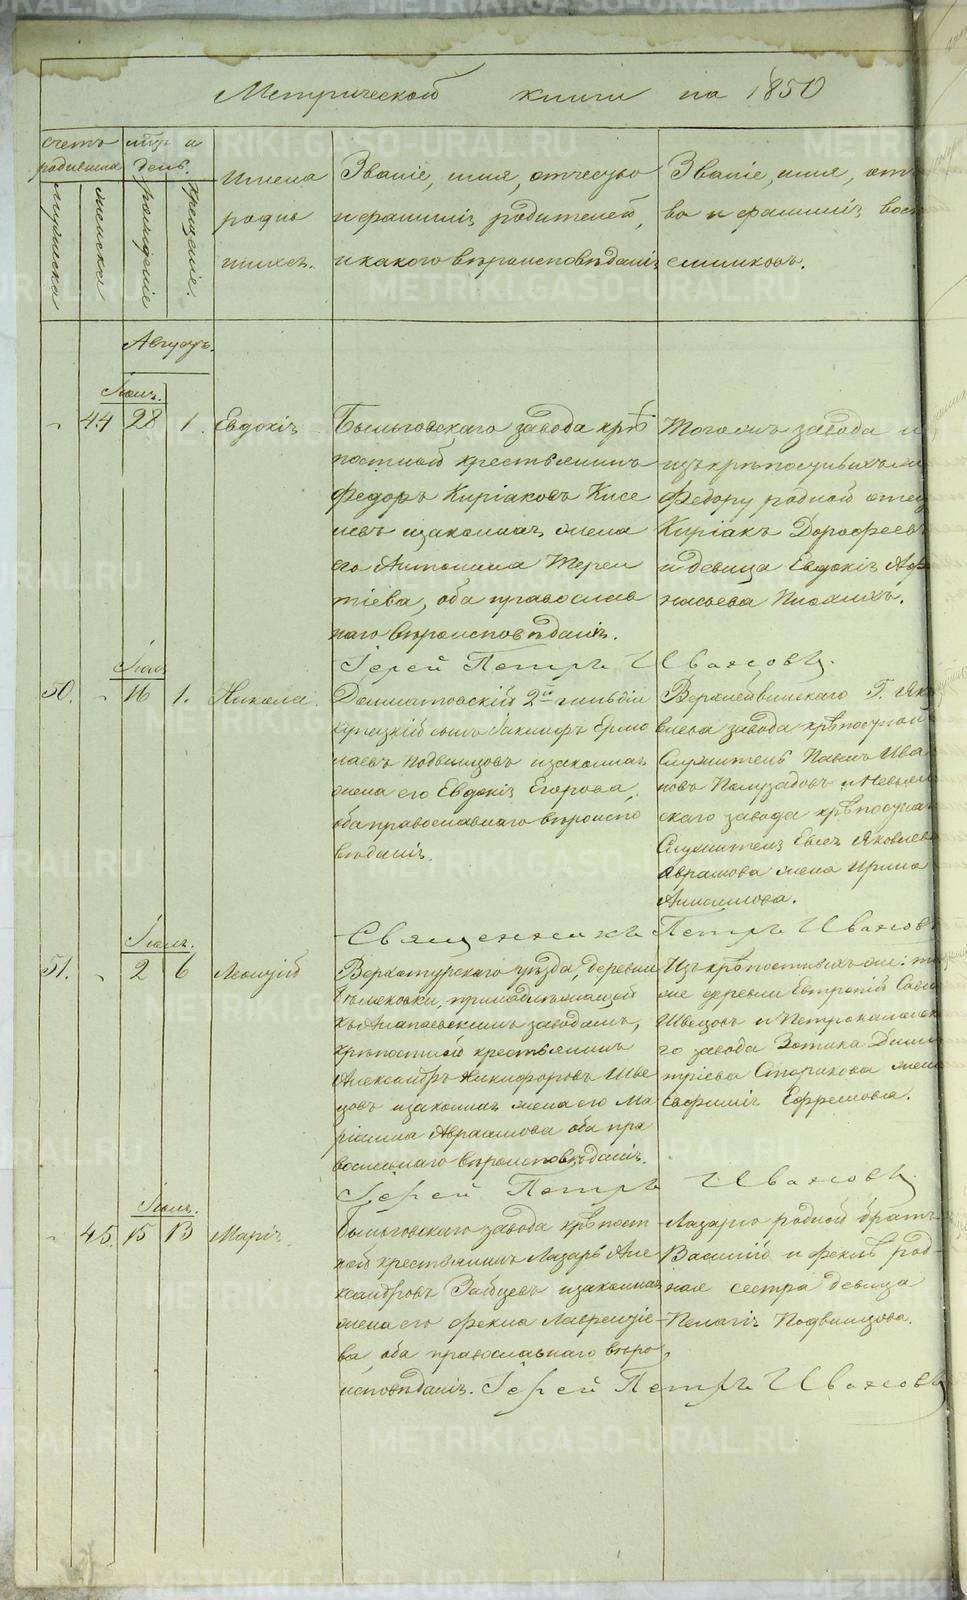 Метрической книги на 1850
Счетъ родившихся
мѣсяцъ и день.
мужеска
женска
рожденіе
крещеніе.
Имена
родив
шихся.
Званіе, имя, отчество
и фамилія родителей,
и какого вѣроисповѣданія
Званіе, имя, отч
во и фамилія вос
емниковъ.
Августъ.
Іюля.
44 28 1. Евдокія
заводa крѣ
постной крестьянинъ
Федоръ Киріаковъ Кисе
левъ и законная жена
его Антонина Терен
тіева, оба православ
наго вѣроисповѣданія.
Тогожъ завода и
изъ крѣпостныхъ же
Федору родной отец
Киріакъ Дорофеевъ
и девица Евдокія Афа
насьева
Іерей Петръ Ивановъ.
Іюля
50. 16 1. Никола
Далматовскій 2й гильдіи
купецкій сынъ Никаноръ Ермо
лаевъ Подвинцовъ и законная
жена его Евдокія Егорова,
оба православнаго вѣроиспо
вѣданія.
Верхнейвинскаго Г. Яко
влева завода крѣпостной
Служитель Павелъ Ива
новъ Полузадовъ и Невьян
скаго завода крѣпостна
Служителя Евсея Яковлева
Аврамова жена Ирина
Священникъ Петръ Ивановъ
Іюля.
51. 2 6 Леонтій
Верхотурскаго уѣзда, деревни
принадлѣжащей
къ Алапаевскимъ заводамъ,
крѣпостной крестьянинъ
Александръ Никифоровъ Шве
цовъ и законная жена его Ма
ріанна Авраамова оба пра
вославнаго вѣроисповѣданія.
Изъ крѣпостныхъ же: той
же деревни Евтропій Савин
Швецовъ и Петрокаменск
го завода Зотика Дими
тріева Старикова жена
Евфимія Ефремова.
Іерей Петръ Ивановъ.
Іюля.
45. 15 13 Марія
завода крѣпост
ной крестьянинъ Лазарь Але
ксандровъ Зайцевъ и законная
жена его Фекла Лаврентіе
ва, оба православнаго вѣро
исповѣданія.
Лазарю родной братъ
Василій и Феклѣ род
ная сестра девица
Пелагія Подвинцова.
Іерей Петръ Ивановъ
METRIKI.GASO-URAL.RU